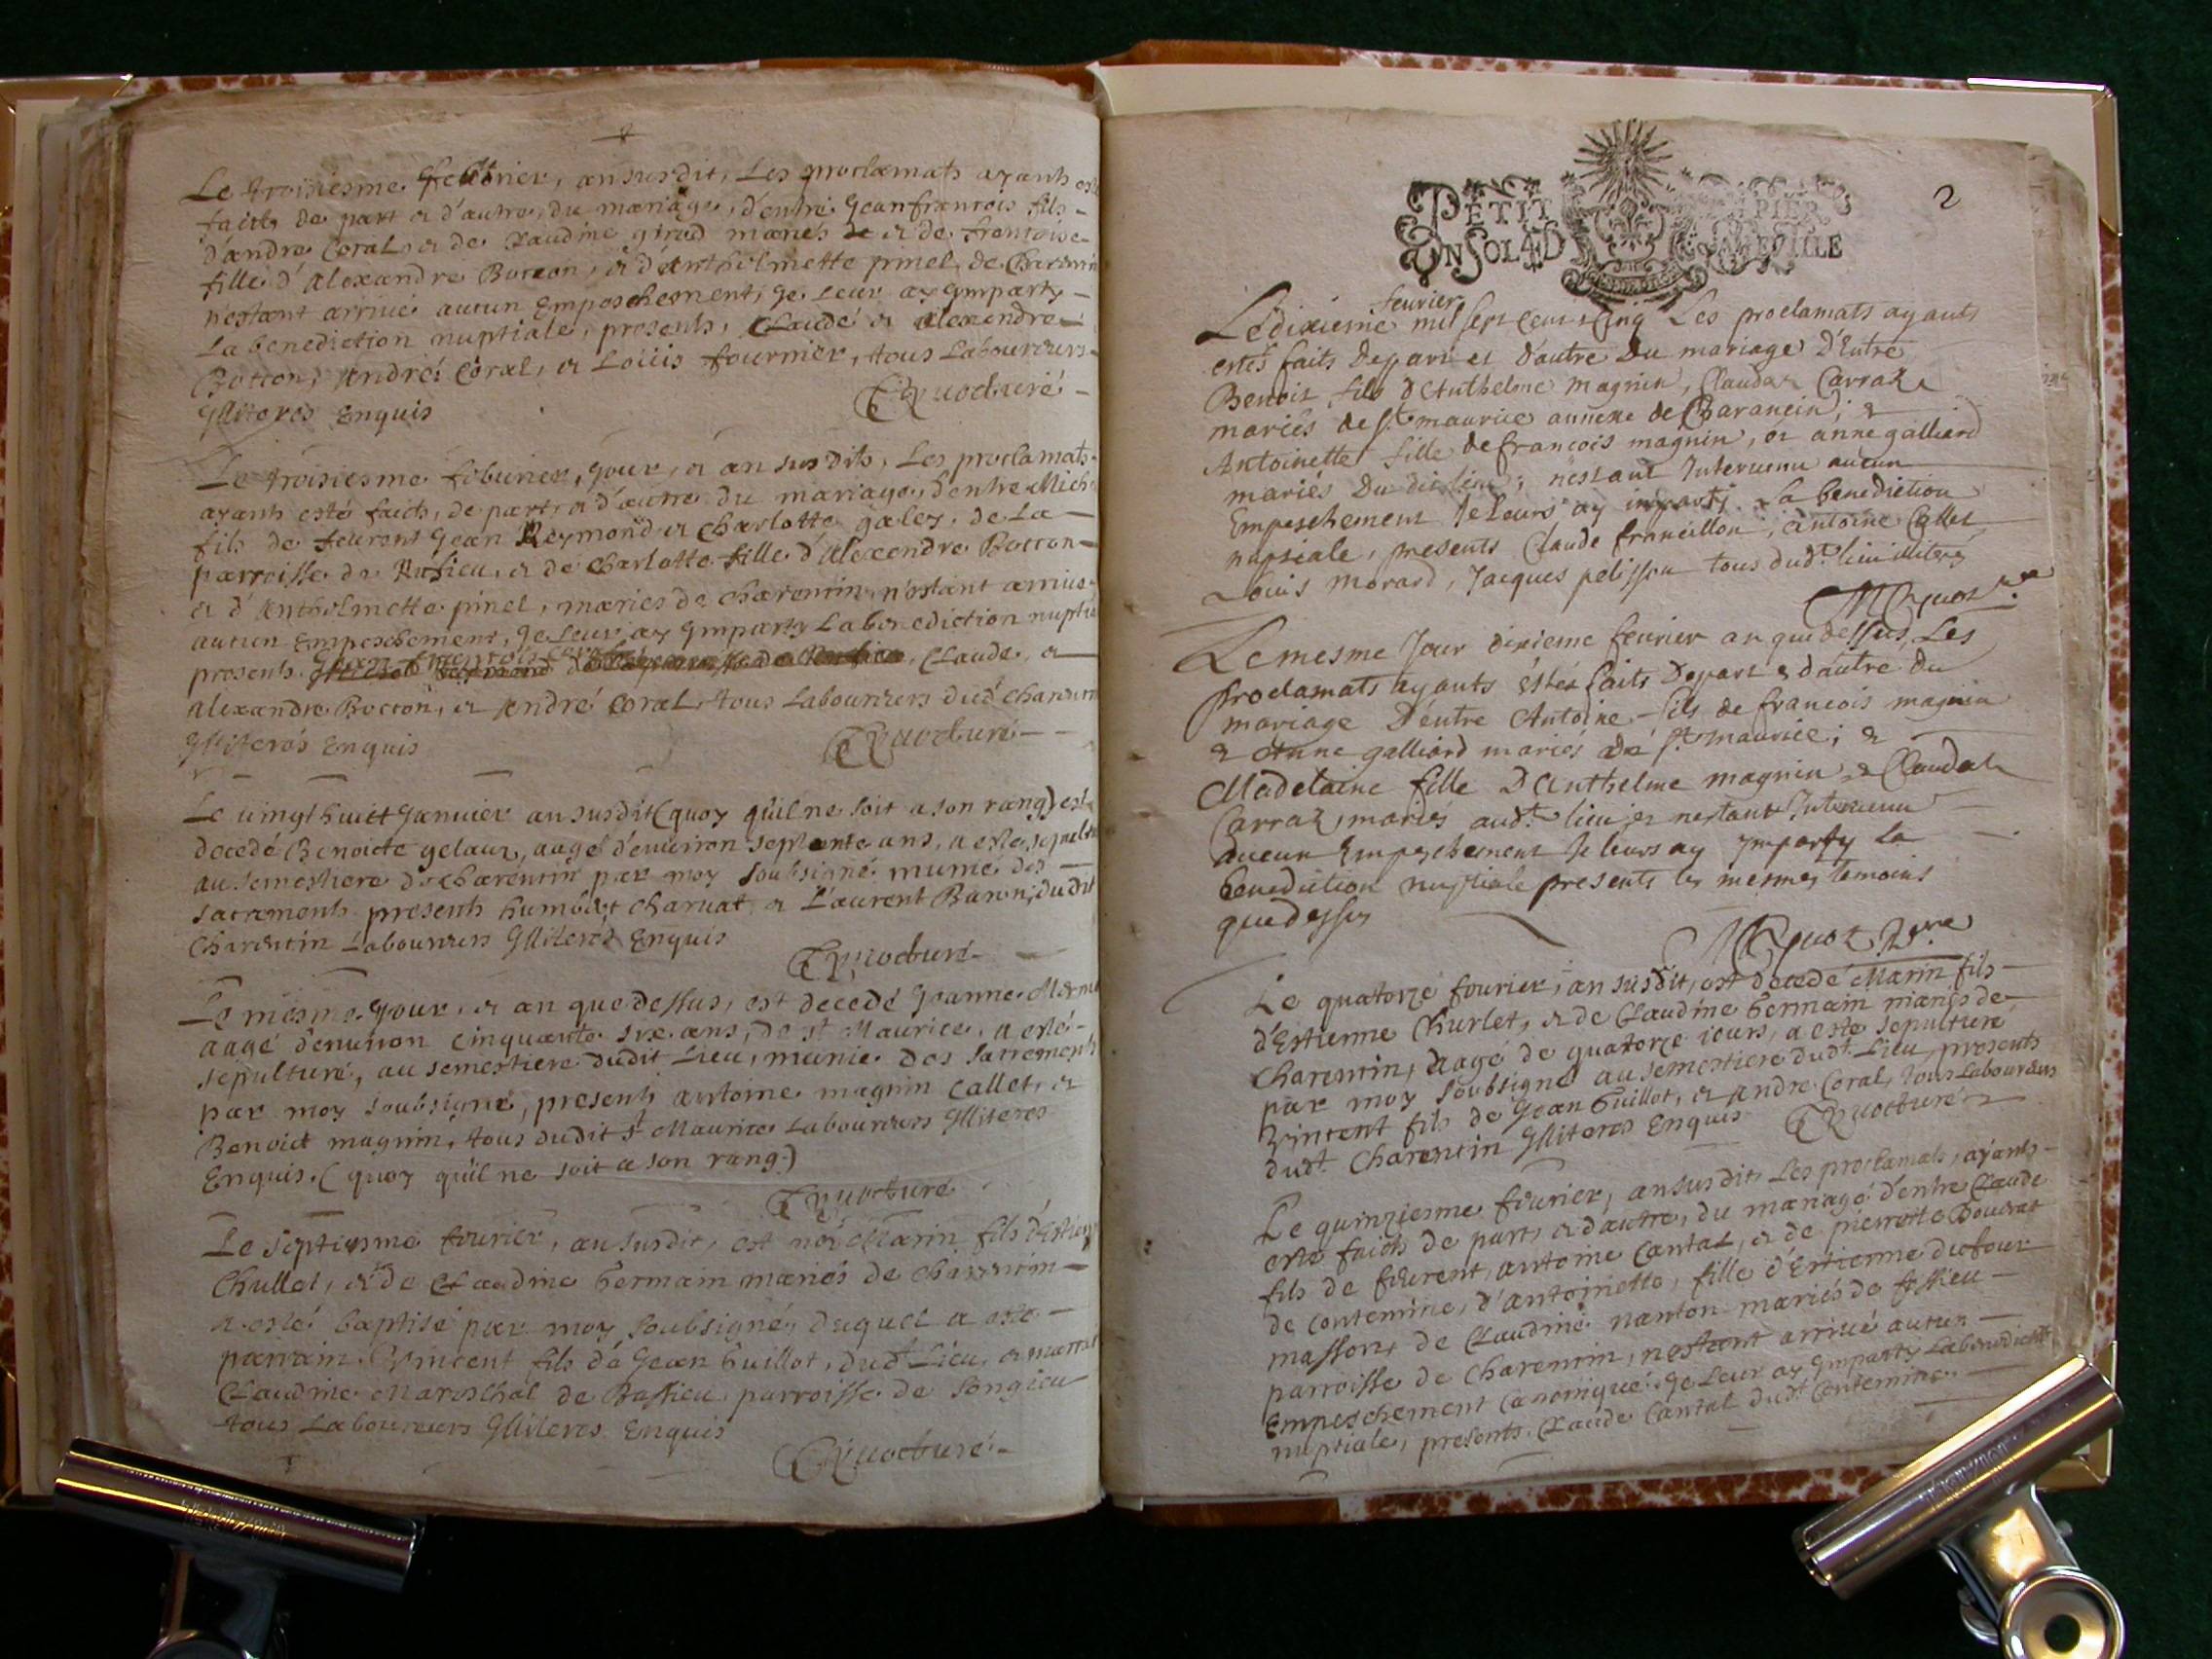 Le troisiesme febvrier, an susdit, Les proclamats ayants esté
faits de part et d'autre, du mariage, d'entre Jean francois fils
d'andre Coral et de Claudine girod mariés et de francoise
fille d'Alexandre Botton, et d'Anthelmette pinel, de Charentin
n'estant arrivé aucun Empeschement, Je Leur ay Imparty
La benediction nuptiale, presents, Claude et Alexendre
Botton, André Coral, et Loüis fournier, tous Laboureurs
Illiteres Enquis
Quoct curé
Le troisiesme febvrier, Jour, et an susdits, Les proclamats
ayants esté faits, de part, et d'autre du mariage, d'entre Mich
fils de feu Jean Reymond et Charlotte galey, de La
parroisse de Rufieu, et de Charlotte fille d'Alexendre Botton
et d'Anthelmette pinel, mariés de Charentin, n'estant arrivé
aucun Empeschement, Je Leur ay Imparty La benediction nuptia
presents Claude, et
Alexandre Botton, et André Coral, tous Laboureurs dudt Charentin
Illiterés Enquis
Quoct curé
Le vingt huict Janvier an susdit (quoy qu'il ne soit a son rang) est
decedé Benoicte gelaux, aagé d'environ septante ans, a esté sepulturé
au semestiere de Charentin par moy soubsigné munie des
sacrements presents humbert Charvat et Laurent Baron, dudit
Charentin Laboureurs Illiterés Enquis
Quoct curé
Le mesme Jour, et an que dessus, est decedé Jeanne
aagé d'environ cinquante six ans, de st Maurice, a esté
sepulturé, au semestiere dudit Lieu, munie des sacrements
par moy soubsigné, presents antoine magnin Callet, et
Benoict magnin, tous dudit st Maurice Laboureurs Illiteres
Enquis. (quoy qu'il ne soit a son rang)
Quoct curé
Le septiesme fevrier, an susdit, est né Marin fils d'Estien
Chullet, et de Claudine Germain mariés de Charentin
a esté baptisé par moy soubsigné, duquel a esté
parrain Vincent fils de Jean Guillot, dudt Lieu, et marrai
Claudine Mareschal de Bassieu parroisse de Songieu
tous Laboureurs Illiteres Enquis
Quoct curé
2
PETIT PAPIER
UN SOL 4D LA FEUILLE
fevrier
Le dixieme mil sept cent cinq Les proclamats ayants
estés faits de part et d'autre Du mariage D'Entre
Benoit fils d'Anthelme magnin, Claudaz Carraz
mariés de St maurice annexe de Charancin; &
Antoinette fille de francois magnin, et anne galliard
mariés Du dit lieu; n'estant Intervenu aucun
Empeschement Je leurs ay imparti La benediction
nuptiale, presents Claude francillon, Antoine Callet
Louis morard, Jacques pelisson tous dudt lieu illiterés
Quoct
Le mesme Jour dixieme fevrier an que dessus, Les
proclamats ayants estés faits De part & d'autre du
mariage D'entre Antoine fils de francois magnin
& Anne galliard mariés de St maurice; &
Madelaine fille D'Anthelme magnin & Claudaz
Carraz mariés audt lieu et nestant Intervenu
aucun Empeschement Je leurs ay Imparty La
benediction nuptiale presents les mesmes temoins
que dessus
Quoct
Le quatorze fevrier, an susdit, est decedé Marin fils
d'Estienne Churlet, et de Claudine Germain mariés de
Charentin, aagé de quatorze jours, a esté sepulturé
par moy soubsigné au semestiere dudt Lieu, presents
Vincent fils de Jean Guillot, et Andre Coral, tous Laboureurs
dudt Charentin Illiteres Enquis Quoct curé
Le quinziesme fevrier, an susdit, Les proclamats, ayants
esté faicts de part, et d'autre, du mariage d'entre Claude
fils de antoine Cantal, et de pierrotte Bouvrat
de Contemine, d'Antoinette, fille d'Estienne dufour
masson, de Claudine nanton mariés de Assieu
parroisse de Charentin, n'estant arrivé aucun
Empeschement Canonique Je Leur ay Imparty La benediction
nuptiale, presents Claude Cantal dudt Contemine